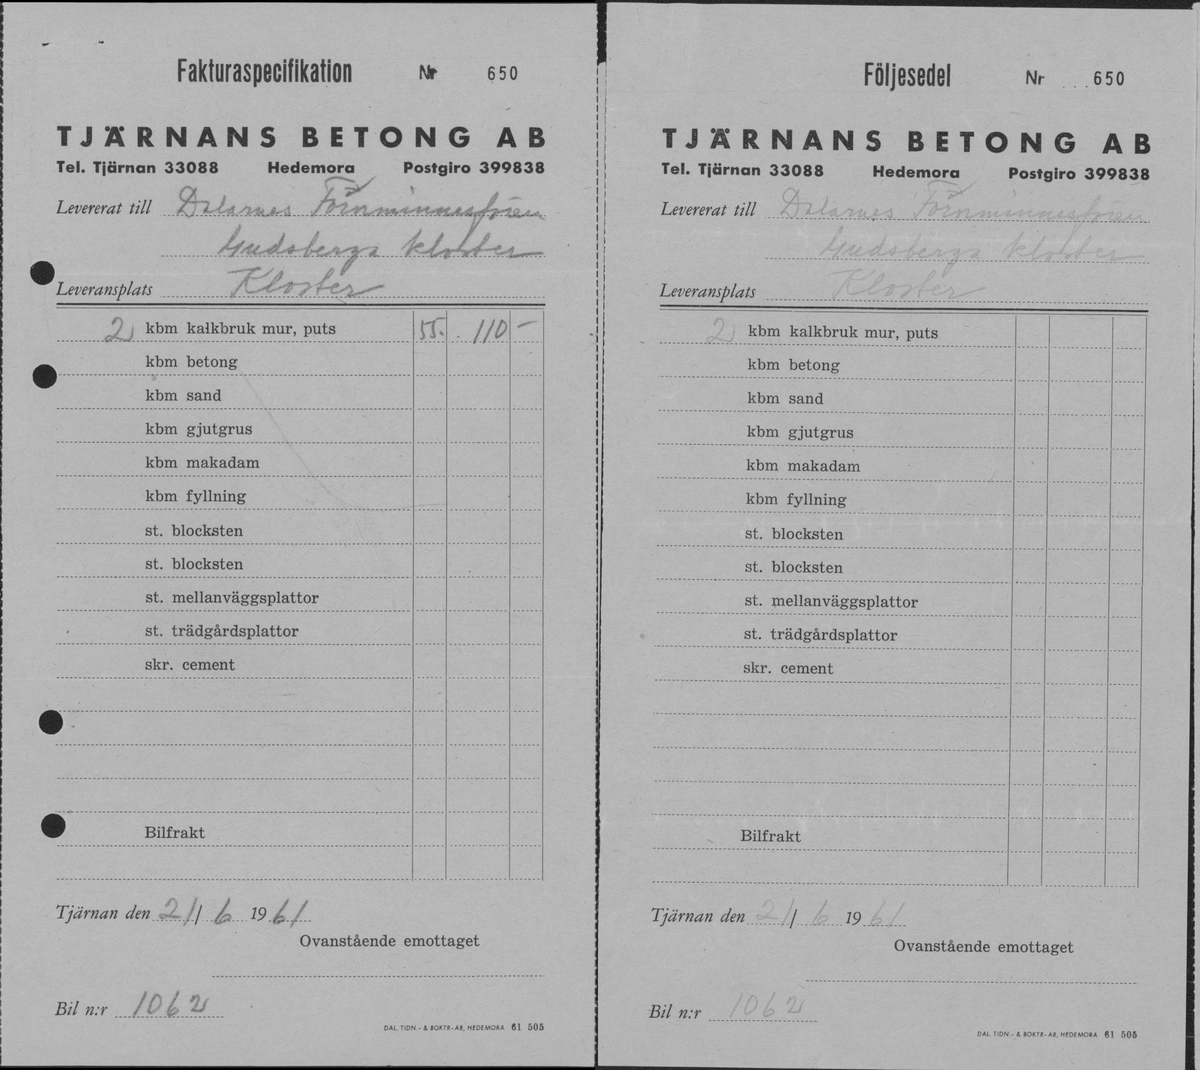 Fakturaspecifikation Nr 650
TJÄRNANS BETONG AB
Tel. Tjärnan 33088 Hedemora Postgiro 399838
Levererat till Dalarnes Fornminnesfören
Gudsberga kloster
Leveransplats Kloster
2 kbm kalkbruk mur, puts 55.- 110 -
kbm betong
kbm sand
kbm gjutgrus
kbm makadam
kbm fyllning
st. blocksten
st. blocksten
st. mellanväggsplattor
st. trädgårdsplattor
skr. cement
Bilfrakt
Tjärnan den 21/6 1961
Ovanstående emottaget
Bil n:r 1062
DAL. TIDN.- & BOKTR-AB, HEDEMORA 61 505
Följesedel Nr 650
TJÄRNANS BETONG AB
Tel. Tjärnan 33088 Hedemora Postgiro 399838
Levererat till Dalarnes Fornminnesfören
Gudsberga kloster
Leveransplats Kloster
2 kbm kalkbruk mur, puts
kbm betong
kbm sand
kbm gjutgrus
kbm makadam
kbm fyllning
st. blocksten
st. blocksten
st. mellanväggsplattor
st. trädgårdsplattor
skr. cement
Bilfrakt
Tjärnan den 21/6 1961
Ovanstående emottaget
Bil n:r 1062
DAL. TIDN.- & BOKTR-AB, HEDEMORA 61 505